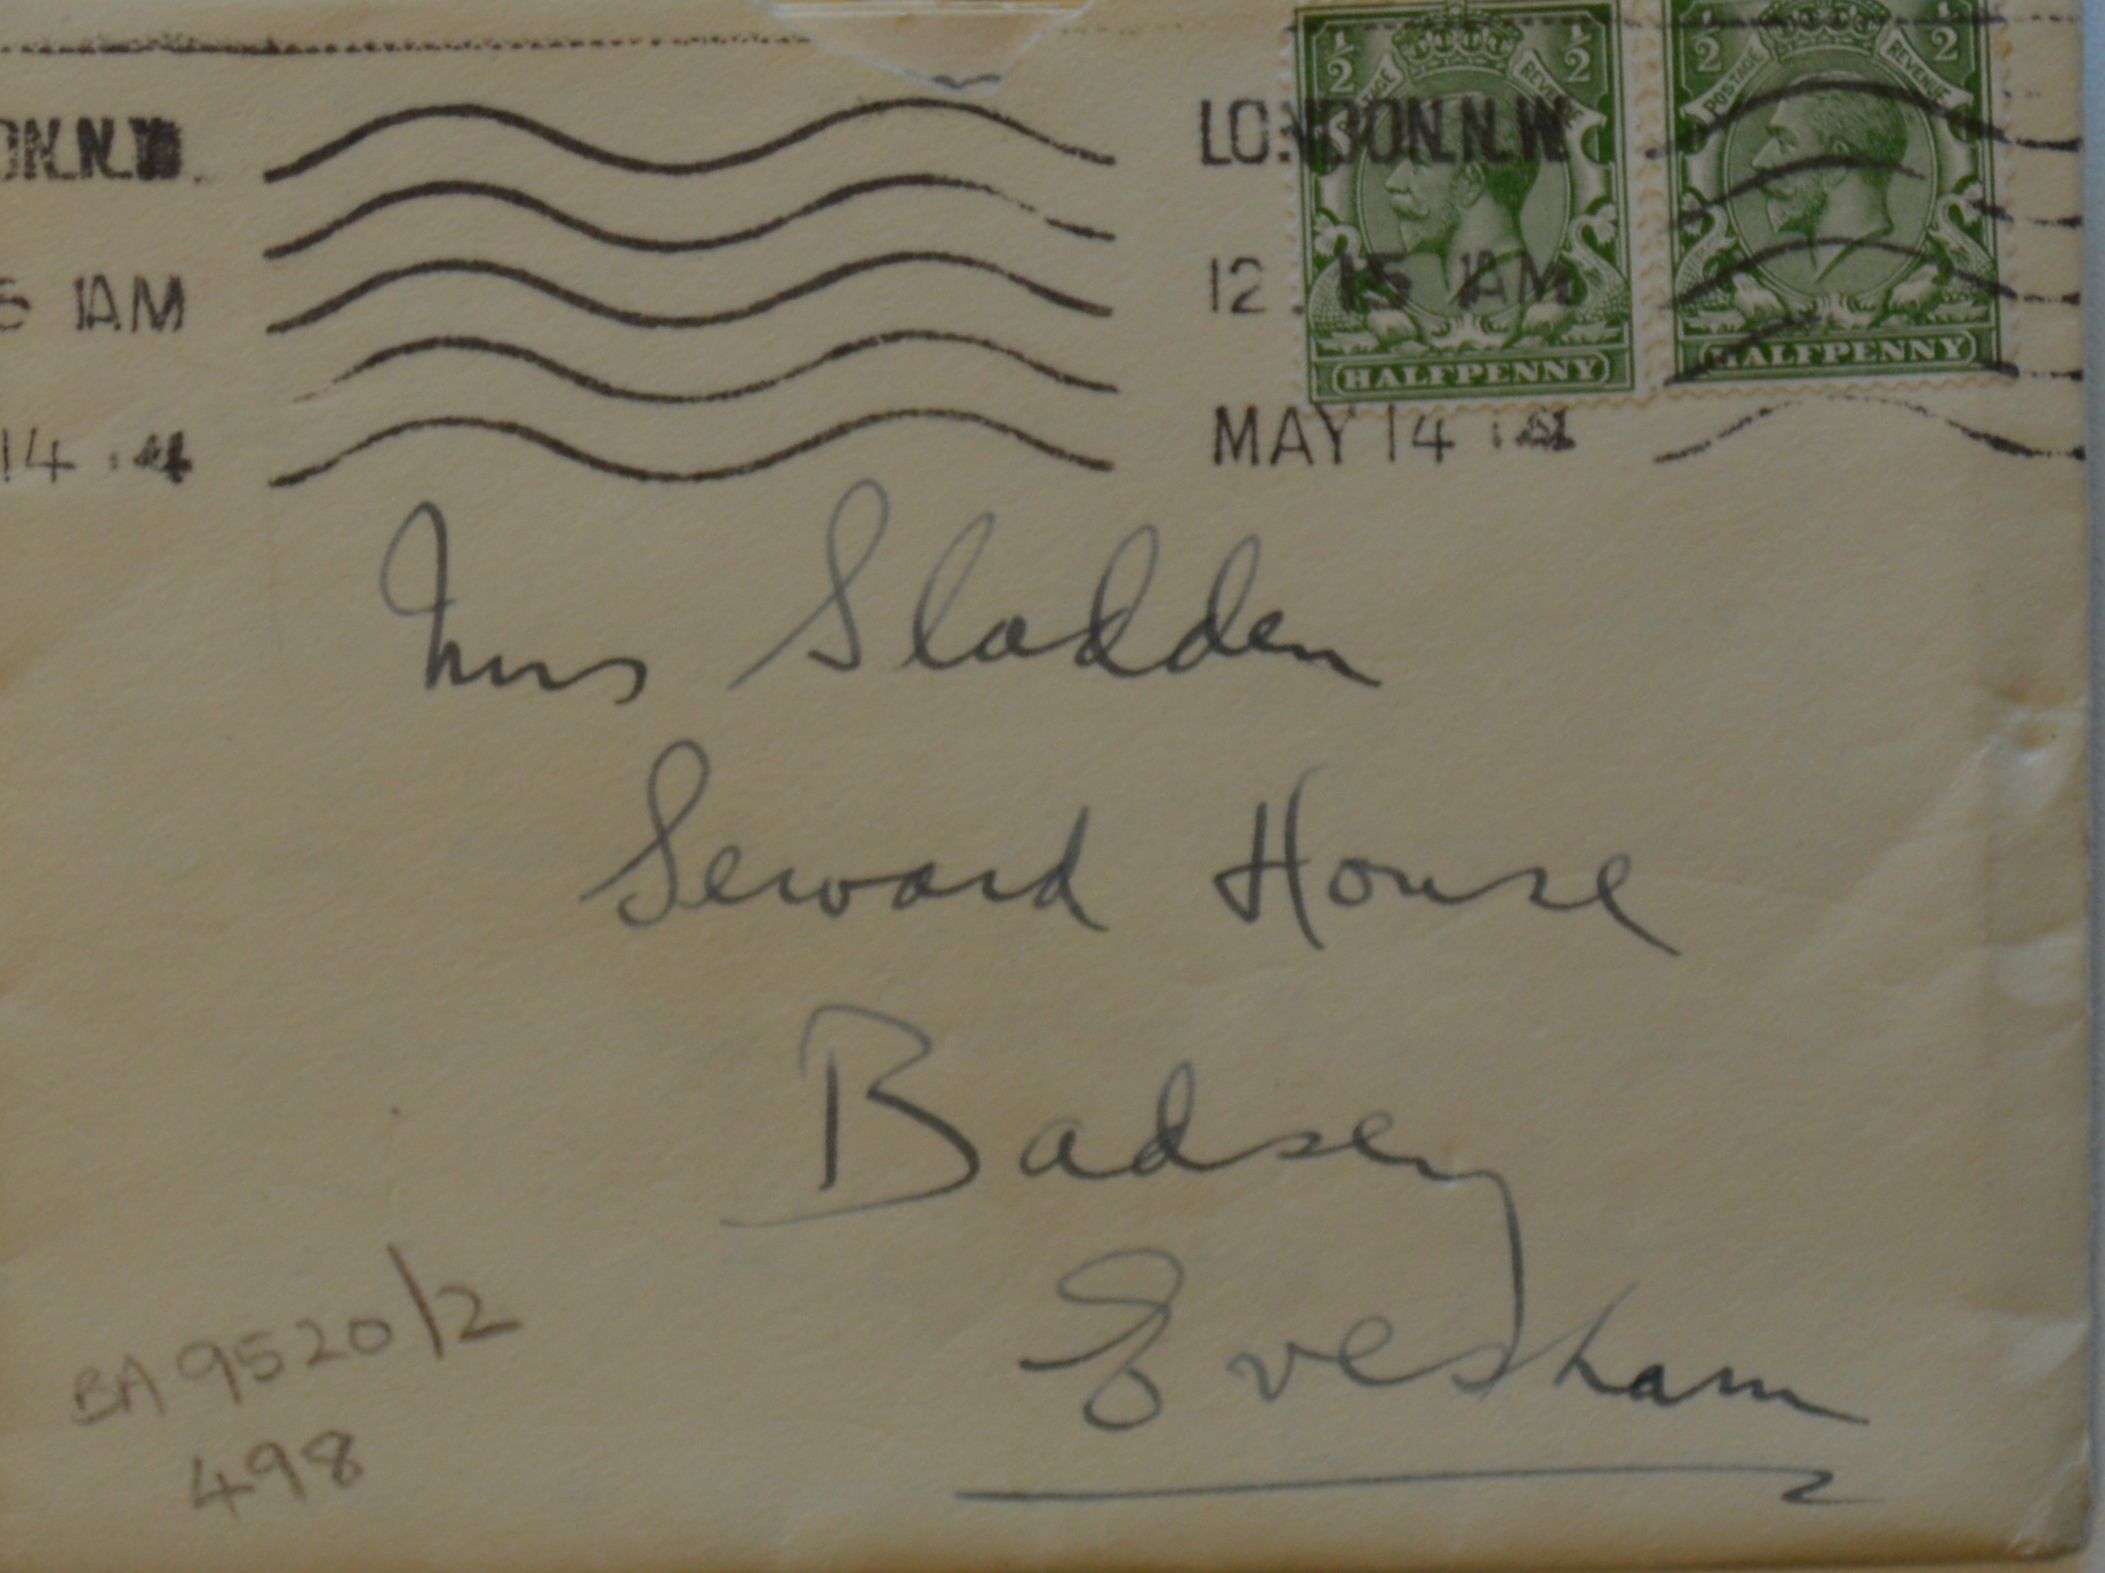 ON.N.W. LONDON.N.W
5 1AM 12.15 1AM
14.14 MAY 14 14
½ POSTAGE REVENUE ½
HALFPENNY
½ POSTAGE REVENUE ½
HALFPENNY
Mrs Sladden
Seward House
Badsey
Evesham
BA 9520/2
498